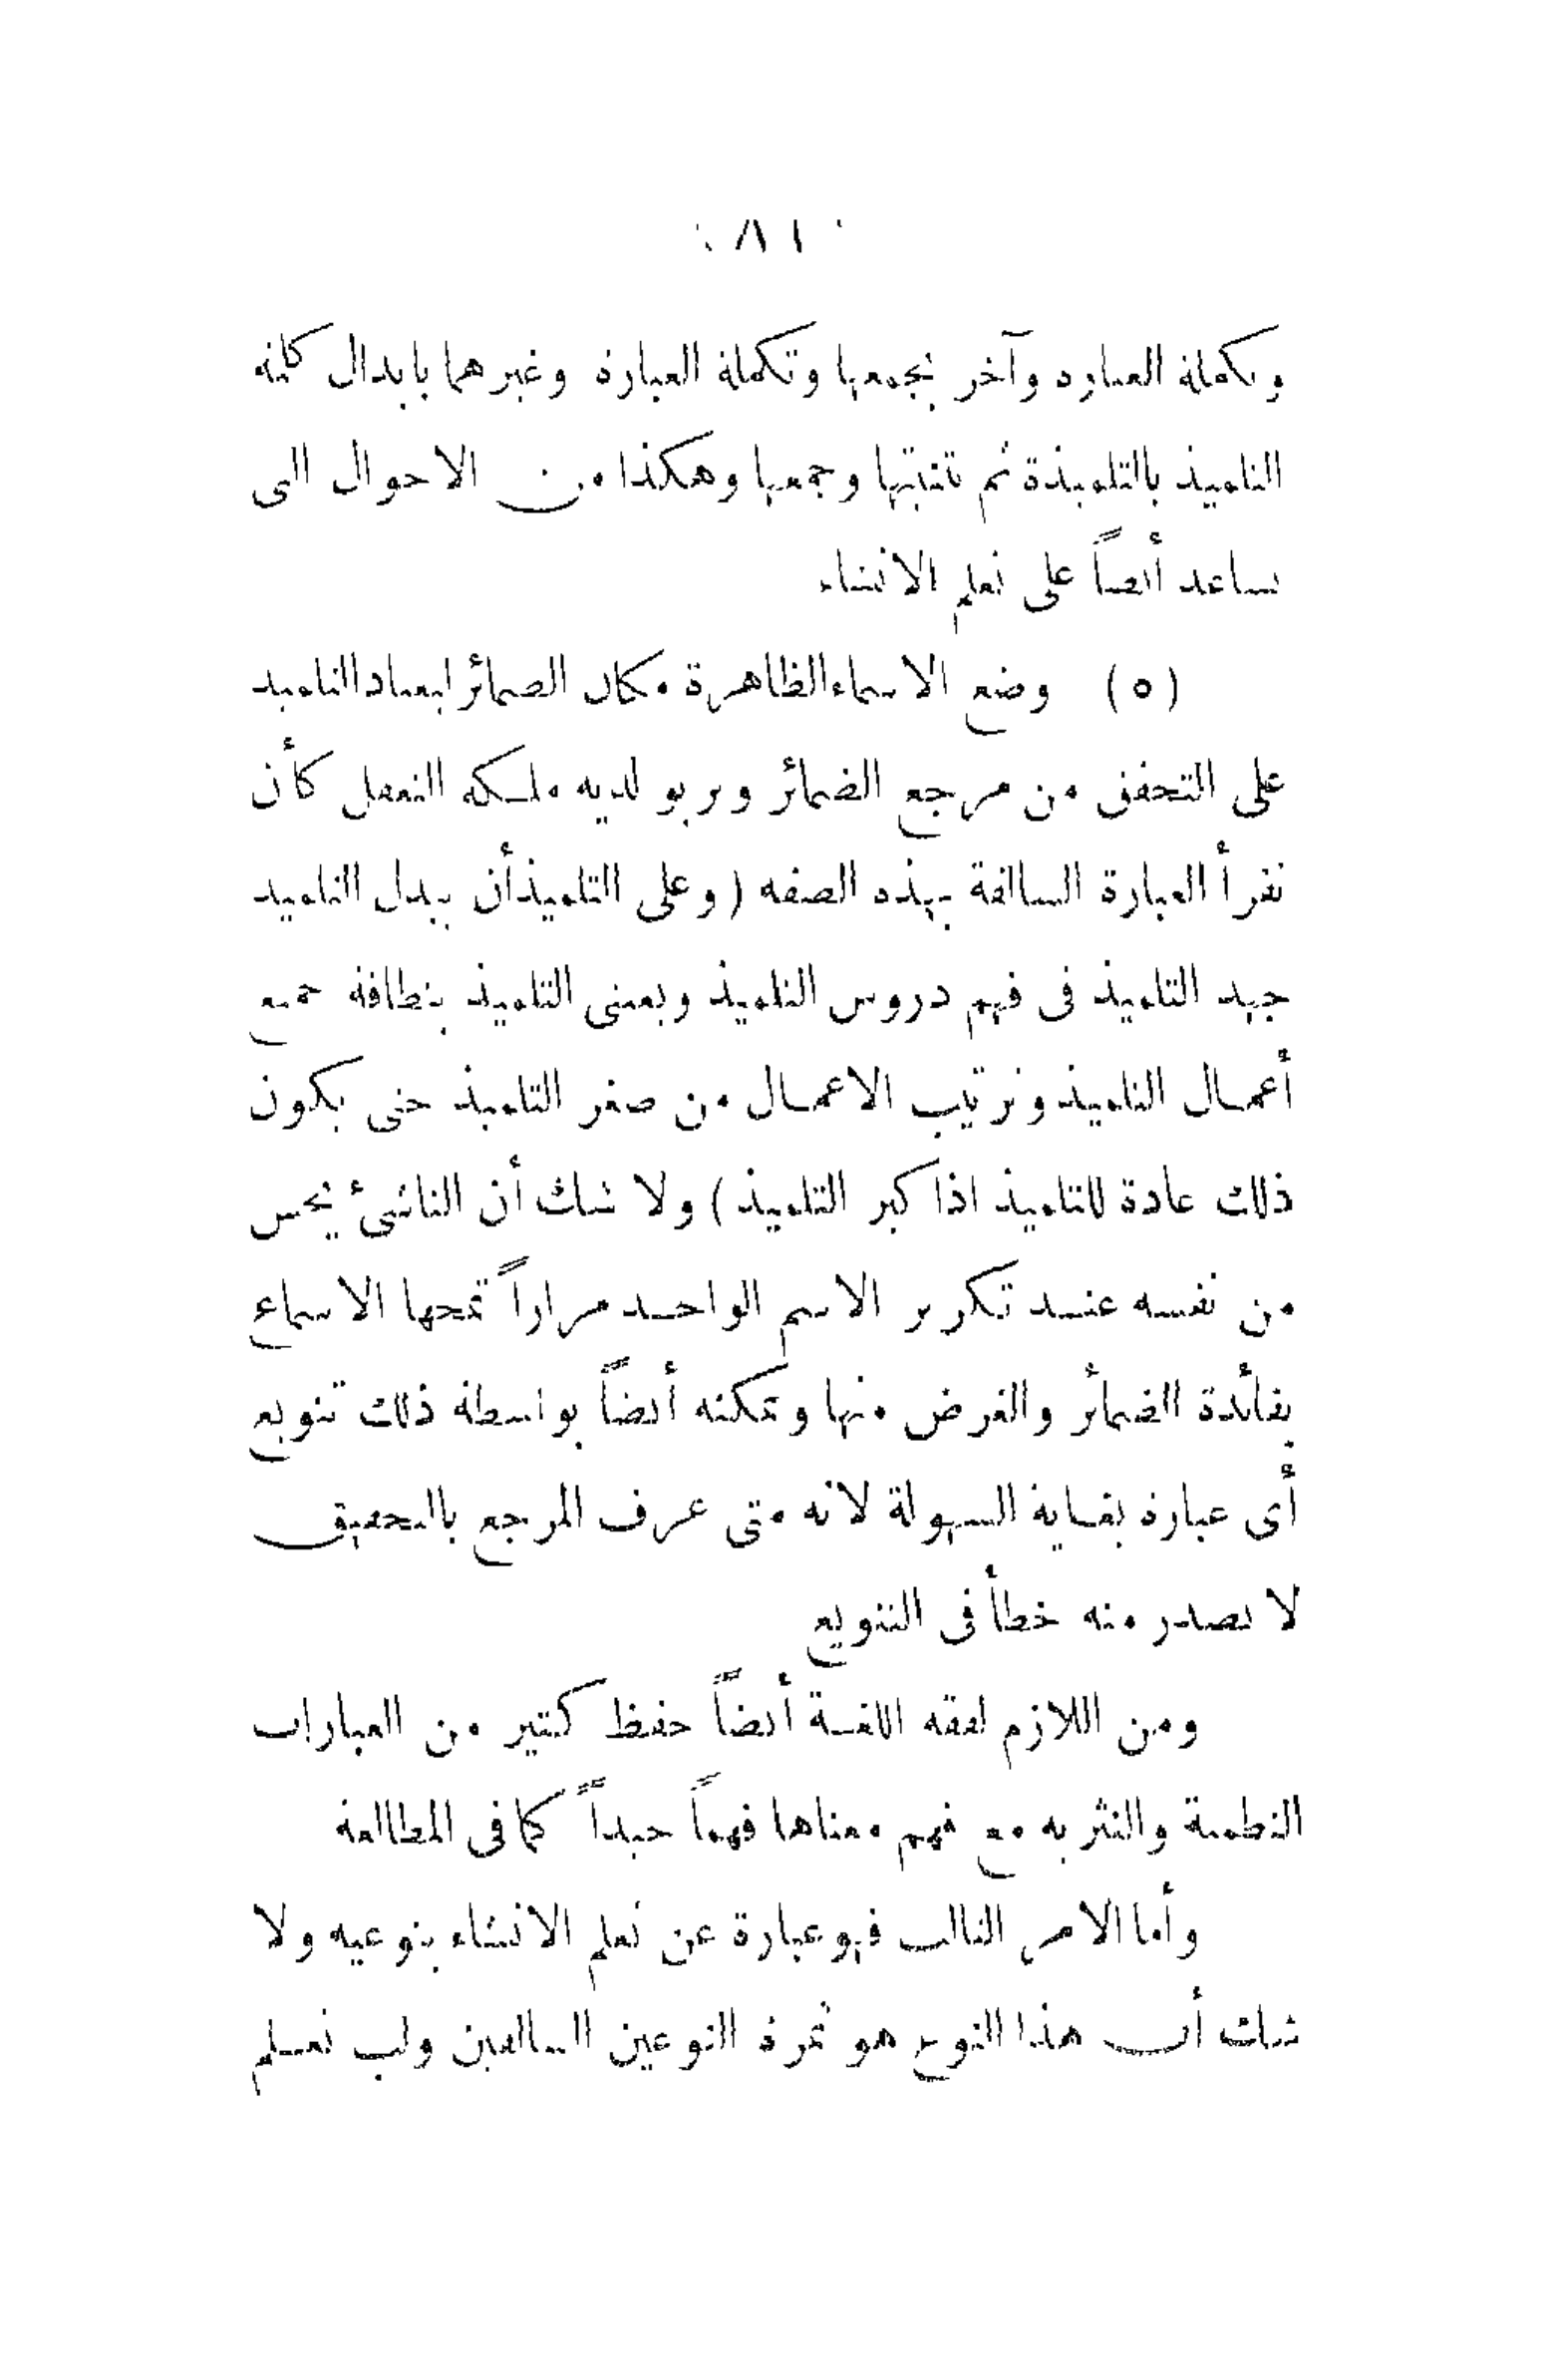 ( ٨١ )
وتكملة العبارة وآخر بجمعها وتكملة العبارة وغيرهما بابدال كلمة
التلميذ بالتلميذة ثم تثنيتها وجمعها وهكذا من الاحوال التى
تساعد أيضاً على تعلم الانشاء
(٥) وضع الاسماء الظاهرة مكان الضمائر ليعتاد التلميذ
على التحقق من مرجع الضمائر ويربو لديه ملكة التعقل كأن
تقرأ العبارة السالفة بهذه الصفة (وعلى التلميذ أن يبذل التلميذ
جهد التلميذ فى فهم دروس التلميذ ويعتنى التلميذ بنظافة جميع
أعمال التلميذ وترتيب الاعمال من صغر التلميذ حتى يكون
ذلك عادة للتلميذ اذا كبر التلميذ) ولا شك أن الناشئ يحس
من نفسه عند تكرير الاسم الواحد مراراً تمجها الاسماع
بفائدة الضمائر والغرض منها ويمكنه أيضاً بواسطة ذلك تنويع
أى عبارة بغاية السهولة لانه متى عرف المرجع بالتحقيق
لا يصدر منه خطأ فى التنويع
ومن اللازم لفقه اللغة أيضاً حفظ كثير من العبارات
النظمية والنثرية مع فهم معناها فهماً جيداً كما فى المطالعة
وأما الامر الثالث فهو عبارة عن تعلم الانشاء بنوعيه ولا
شك أن هذا النوع هو ثمرة النوعين السالفين ولب تعلم